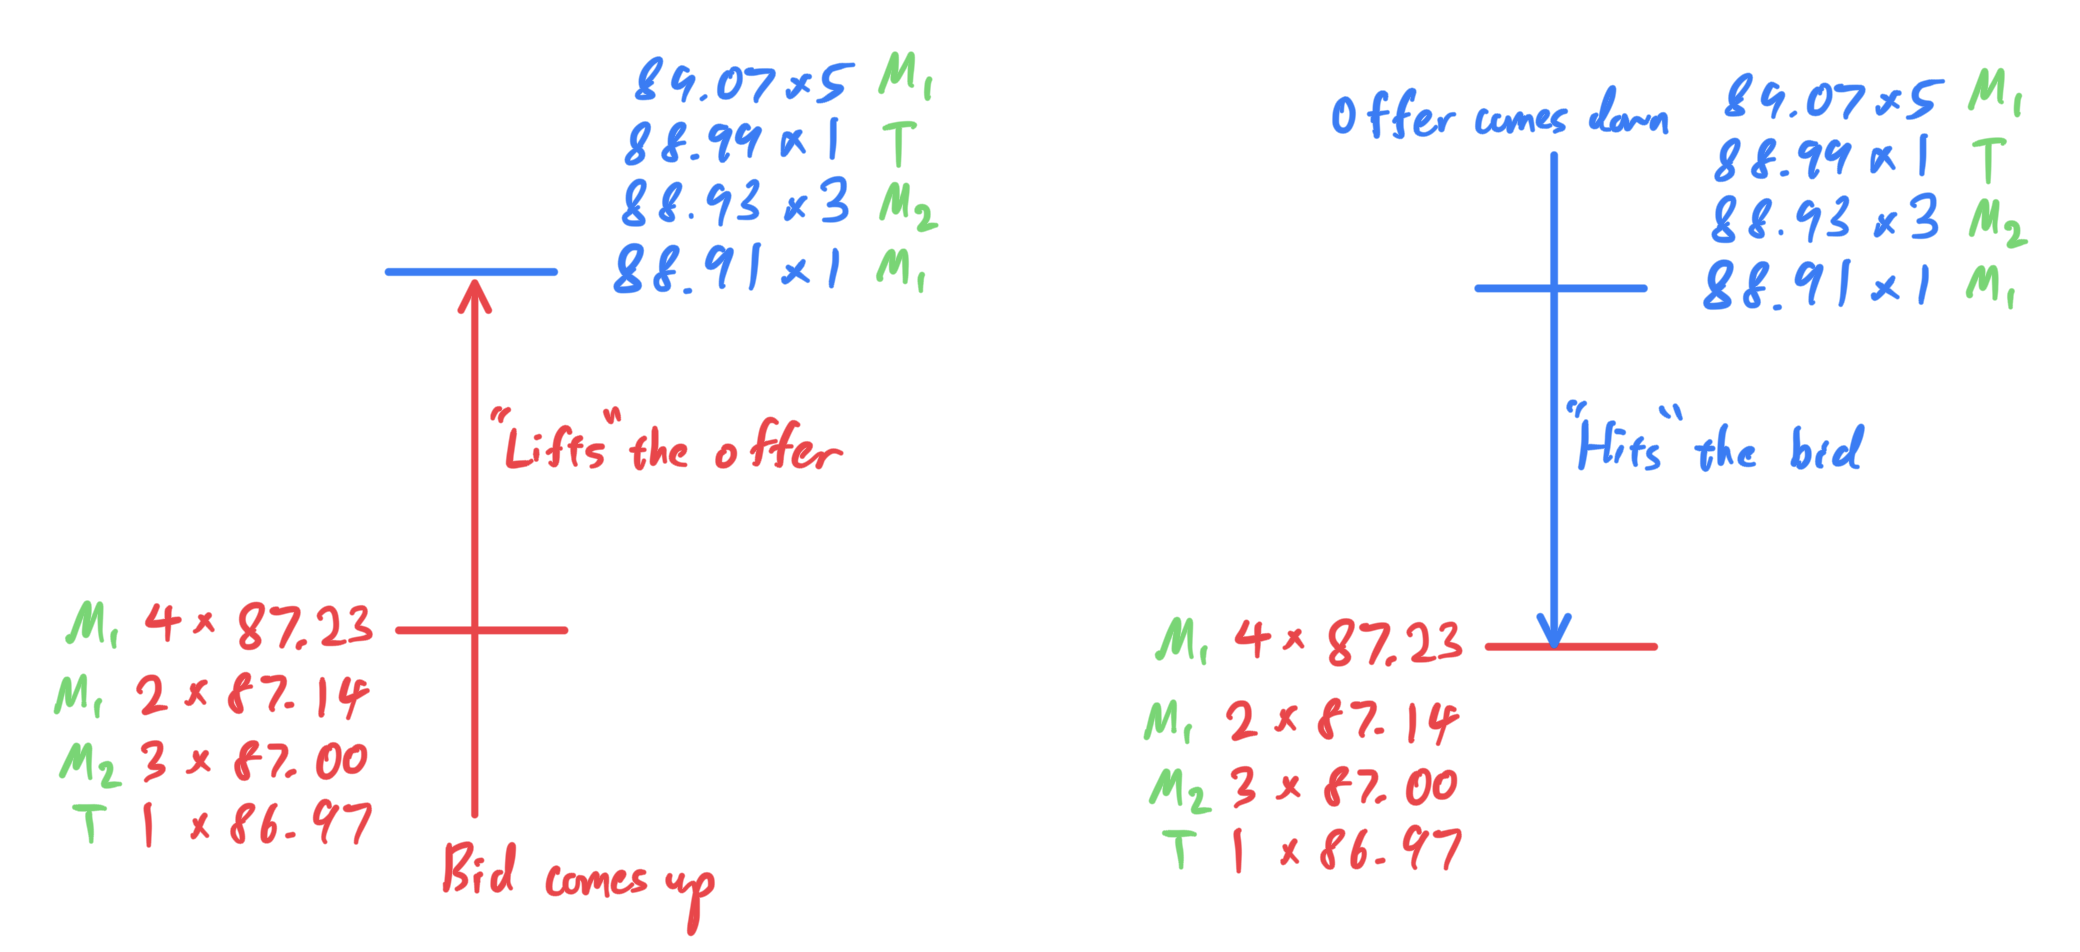 89.07 x 5 M₁
88.99 x 1 T
88.93 x 3 M₂
88.91 x 1 M₁
"Lifts" the offer
M₁ 4 x 87.23
M₁ 2 x 87.14
M₂ 3 x 87.00
T 1 x 86.97
Bid comes up
Offer comes down
89.07 x 5 M₁
88.99 x 1 T
88.93 x 3 M₂
88.91 x 1 M₁
"Hits" the bid
M₁ 4 x 87.23
M₁ 2 x 87.14
M₂ 3 x 87.00
T 1 x 86.97